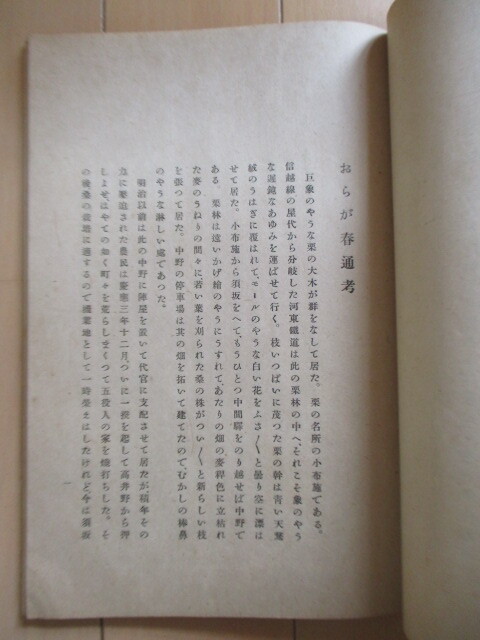 おらが春通考
巨象のやうな栗の大木が群をなして居た。栗の名所の小布施である。
信越線の屋代から分岐した河東鐵道は此の栗林の中へ、それこそ象のやう
な遲鈍なあゆみを運ばせて行く。枝いつぱいに茂つた栗の幹は青い天鵞
絨のうはぎに覆はれて、モールのやうな白い花をふさ〳〵と曇り空に漂は
せて居た。小布施から須坂をへて、もうひとつ中間驛をのり越せば中野で
ある。栗林は遠いかげ繪のやうにうすれて、あたりの畑の麥稈色に立枯れ
た麥のうねりの間々に、若い葉を刈られた桑の株がつい〳〵と新らしい枝
を張つて居た。中野の停車場は其の畑を拓いて建てたので、むかしの棒鼻
のやうな淋しい處であつた。
明治以前は此の中野に陣屋を置いて代官に支配させて居たが、積年その
に壓迫された農民は慶應三年十二月、つひに一揆を起して高井野から押
しよせ、はやての如く町々を荒らしまくつて五役人の家を燒打ちした。そ
の後桑の栽培に適するので養蠶地として一時榮えはしたけれど、今は須坂
一